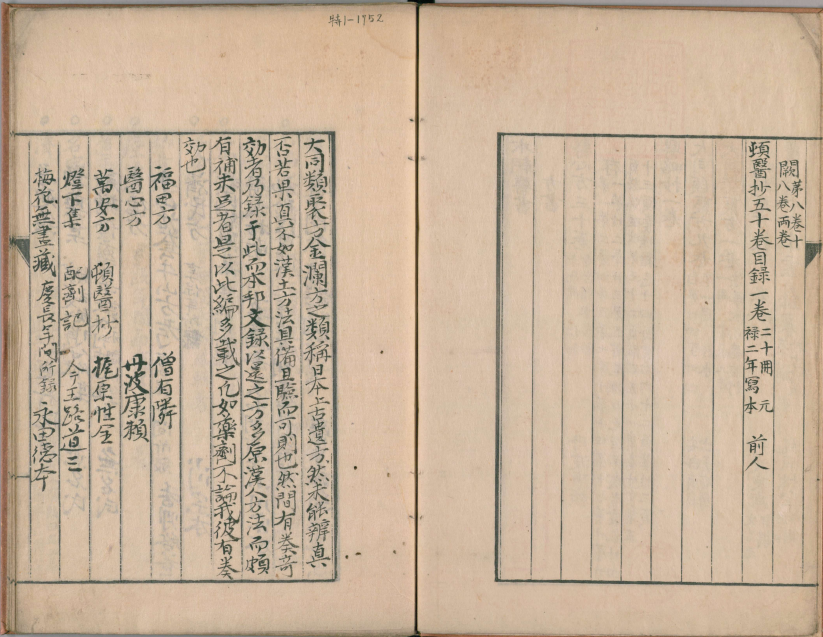 闕第八卷十
八卷両卷
頓醫抄五十卷目録一卷 二十冊 元
禄二年寫本 前人
特1-1952
大同類聚方金瀾方之類稱日本上古遺方然未能辨真
否若果真不如漢土方法具備且驗而可則也然間有奏奇
効者乃録于此而本邦文録以還之方多原漢人方法而頗
有補未足者是以此編多載之凡如藥劑不論我彼有奏
効也
福田方 僧有隣
醫心方 丹波康頼
萬安方 頓醫抄 梶原性全
燈下集 配劑記 今王路道三
梅花無盡藏 慶長年間所録 永田德本